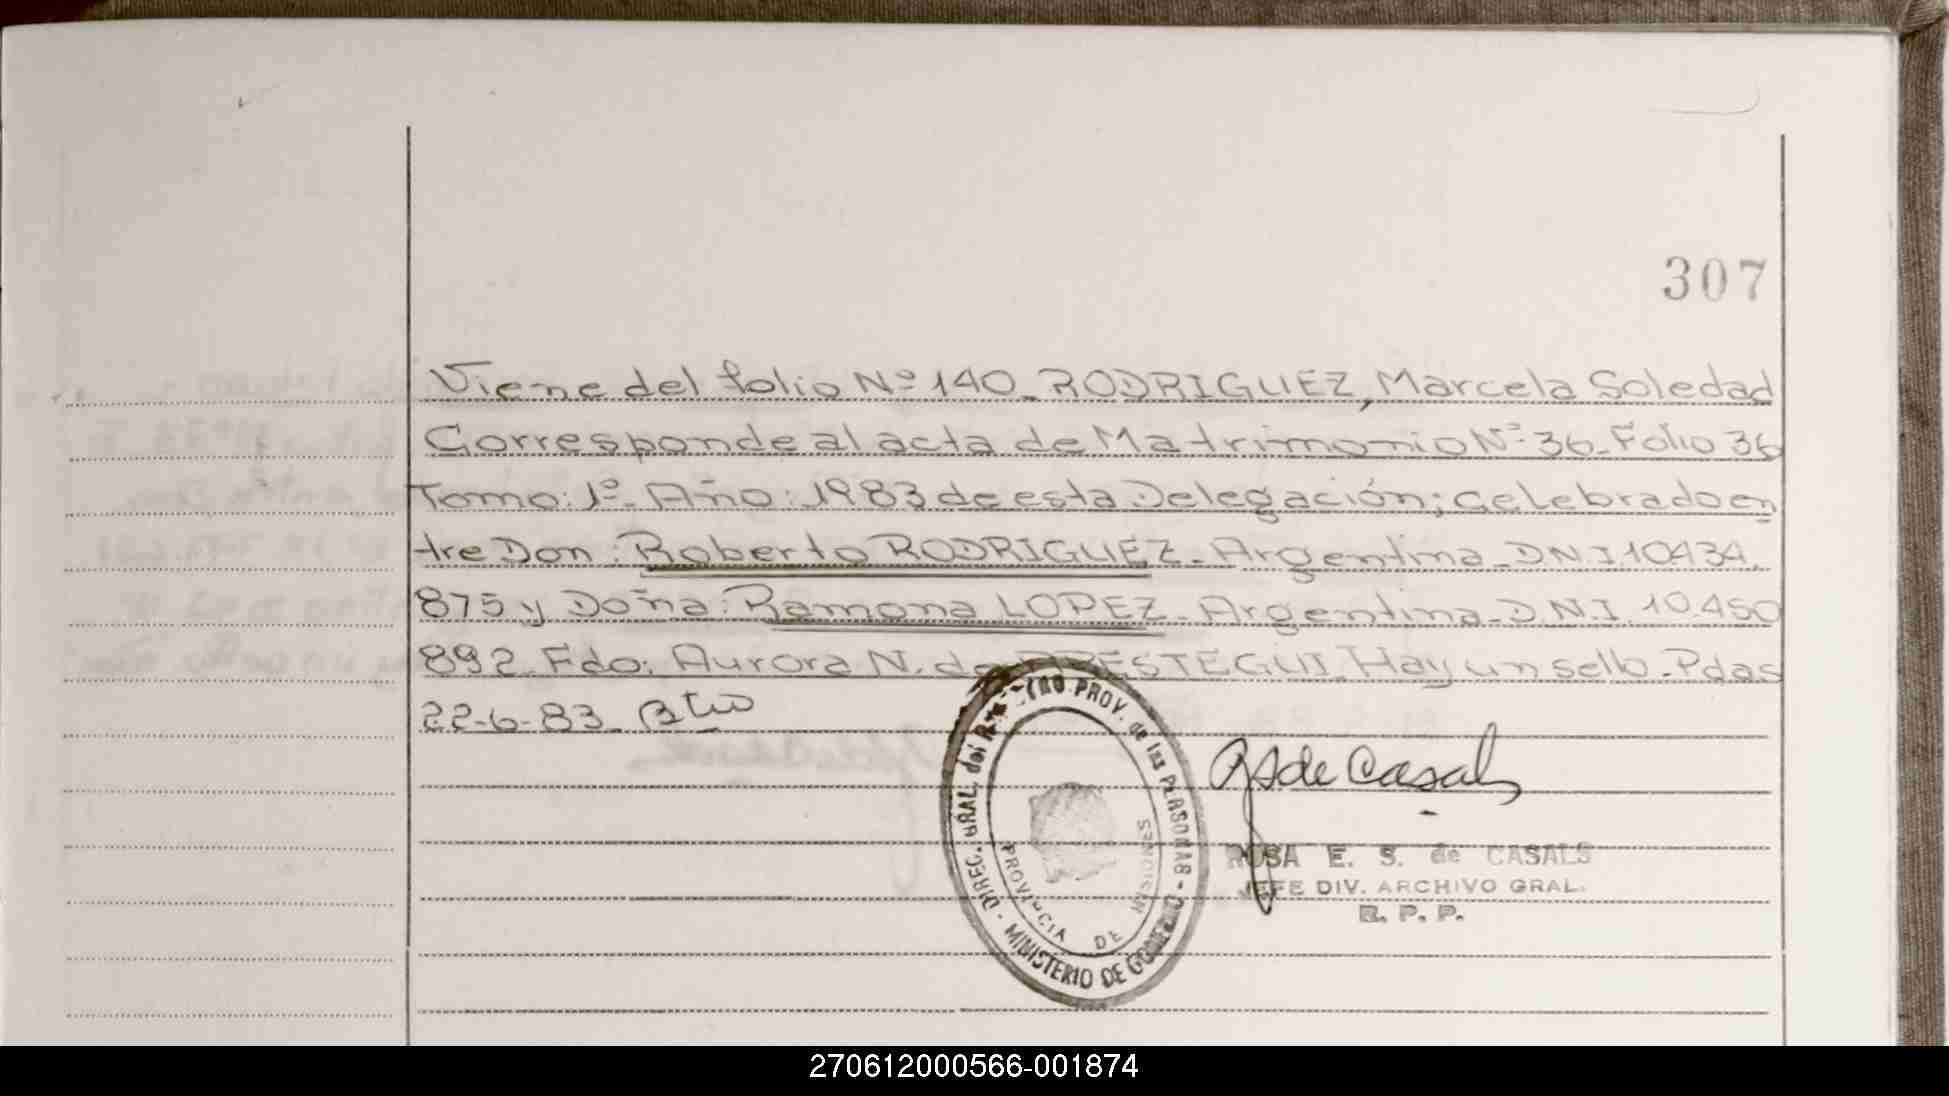 307
Viene del folio Nº 140_ RODRIGUEZ, Marcela Soledad
Corresponde al acta de Matrimonio Nº 36_ Folio 36
Tomo: 1º_ Año: 1983 de esta Delegación; celebrado en
tre Don: Roberto RODRIGUEZ_ Argentina_ D.N.I. 10434.
875 y Doña: Ramona LOPEZ_ Argentina_ D.N.I. 10450
892_ Fdo: Aurora N. de Hay un sello_ Pdas
22-6-83_
DIREC. GRAL. del REGISTRO PROV. de las PERSONAS - MINISTERIO DE GOBIERNO -
PROVINCIA DE MISIONES
de Casals
ROSA E. S. de CASALS
JEFE DIV. ARCHIVO GRAL.
R. P. P.
270612000566-001874